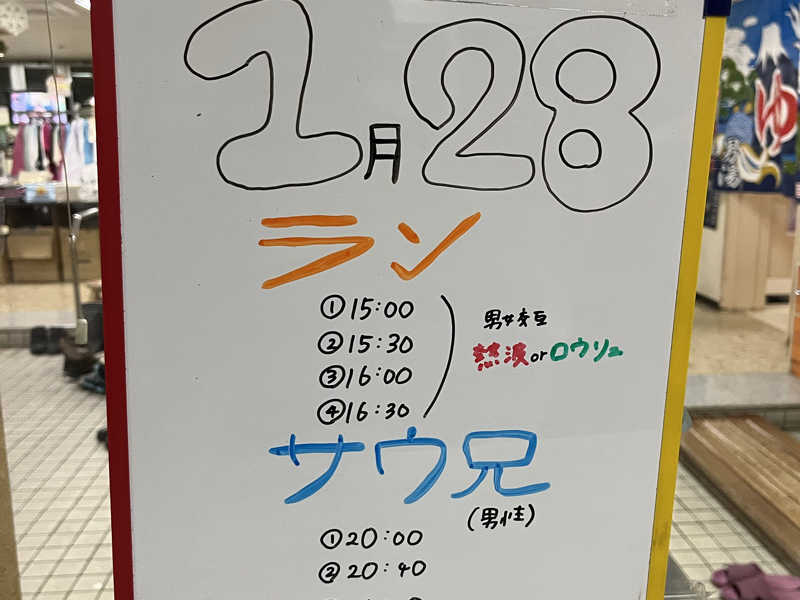 1月28
ラン
①15:00
②15:30
③16:00
④16:30
男女交互
熱波orロウリュ
サウ兄
(男性)
①20:00
②20:40
ゆ